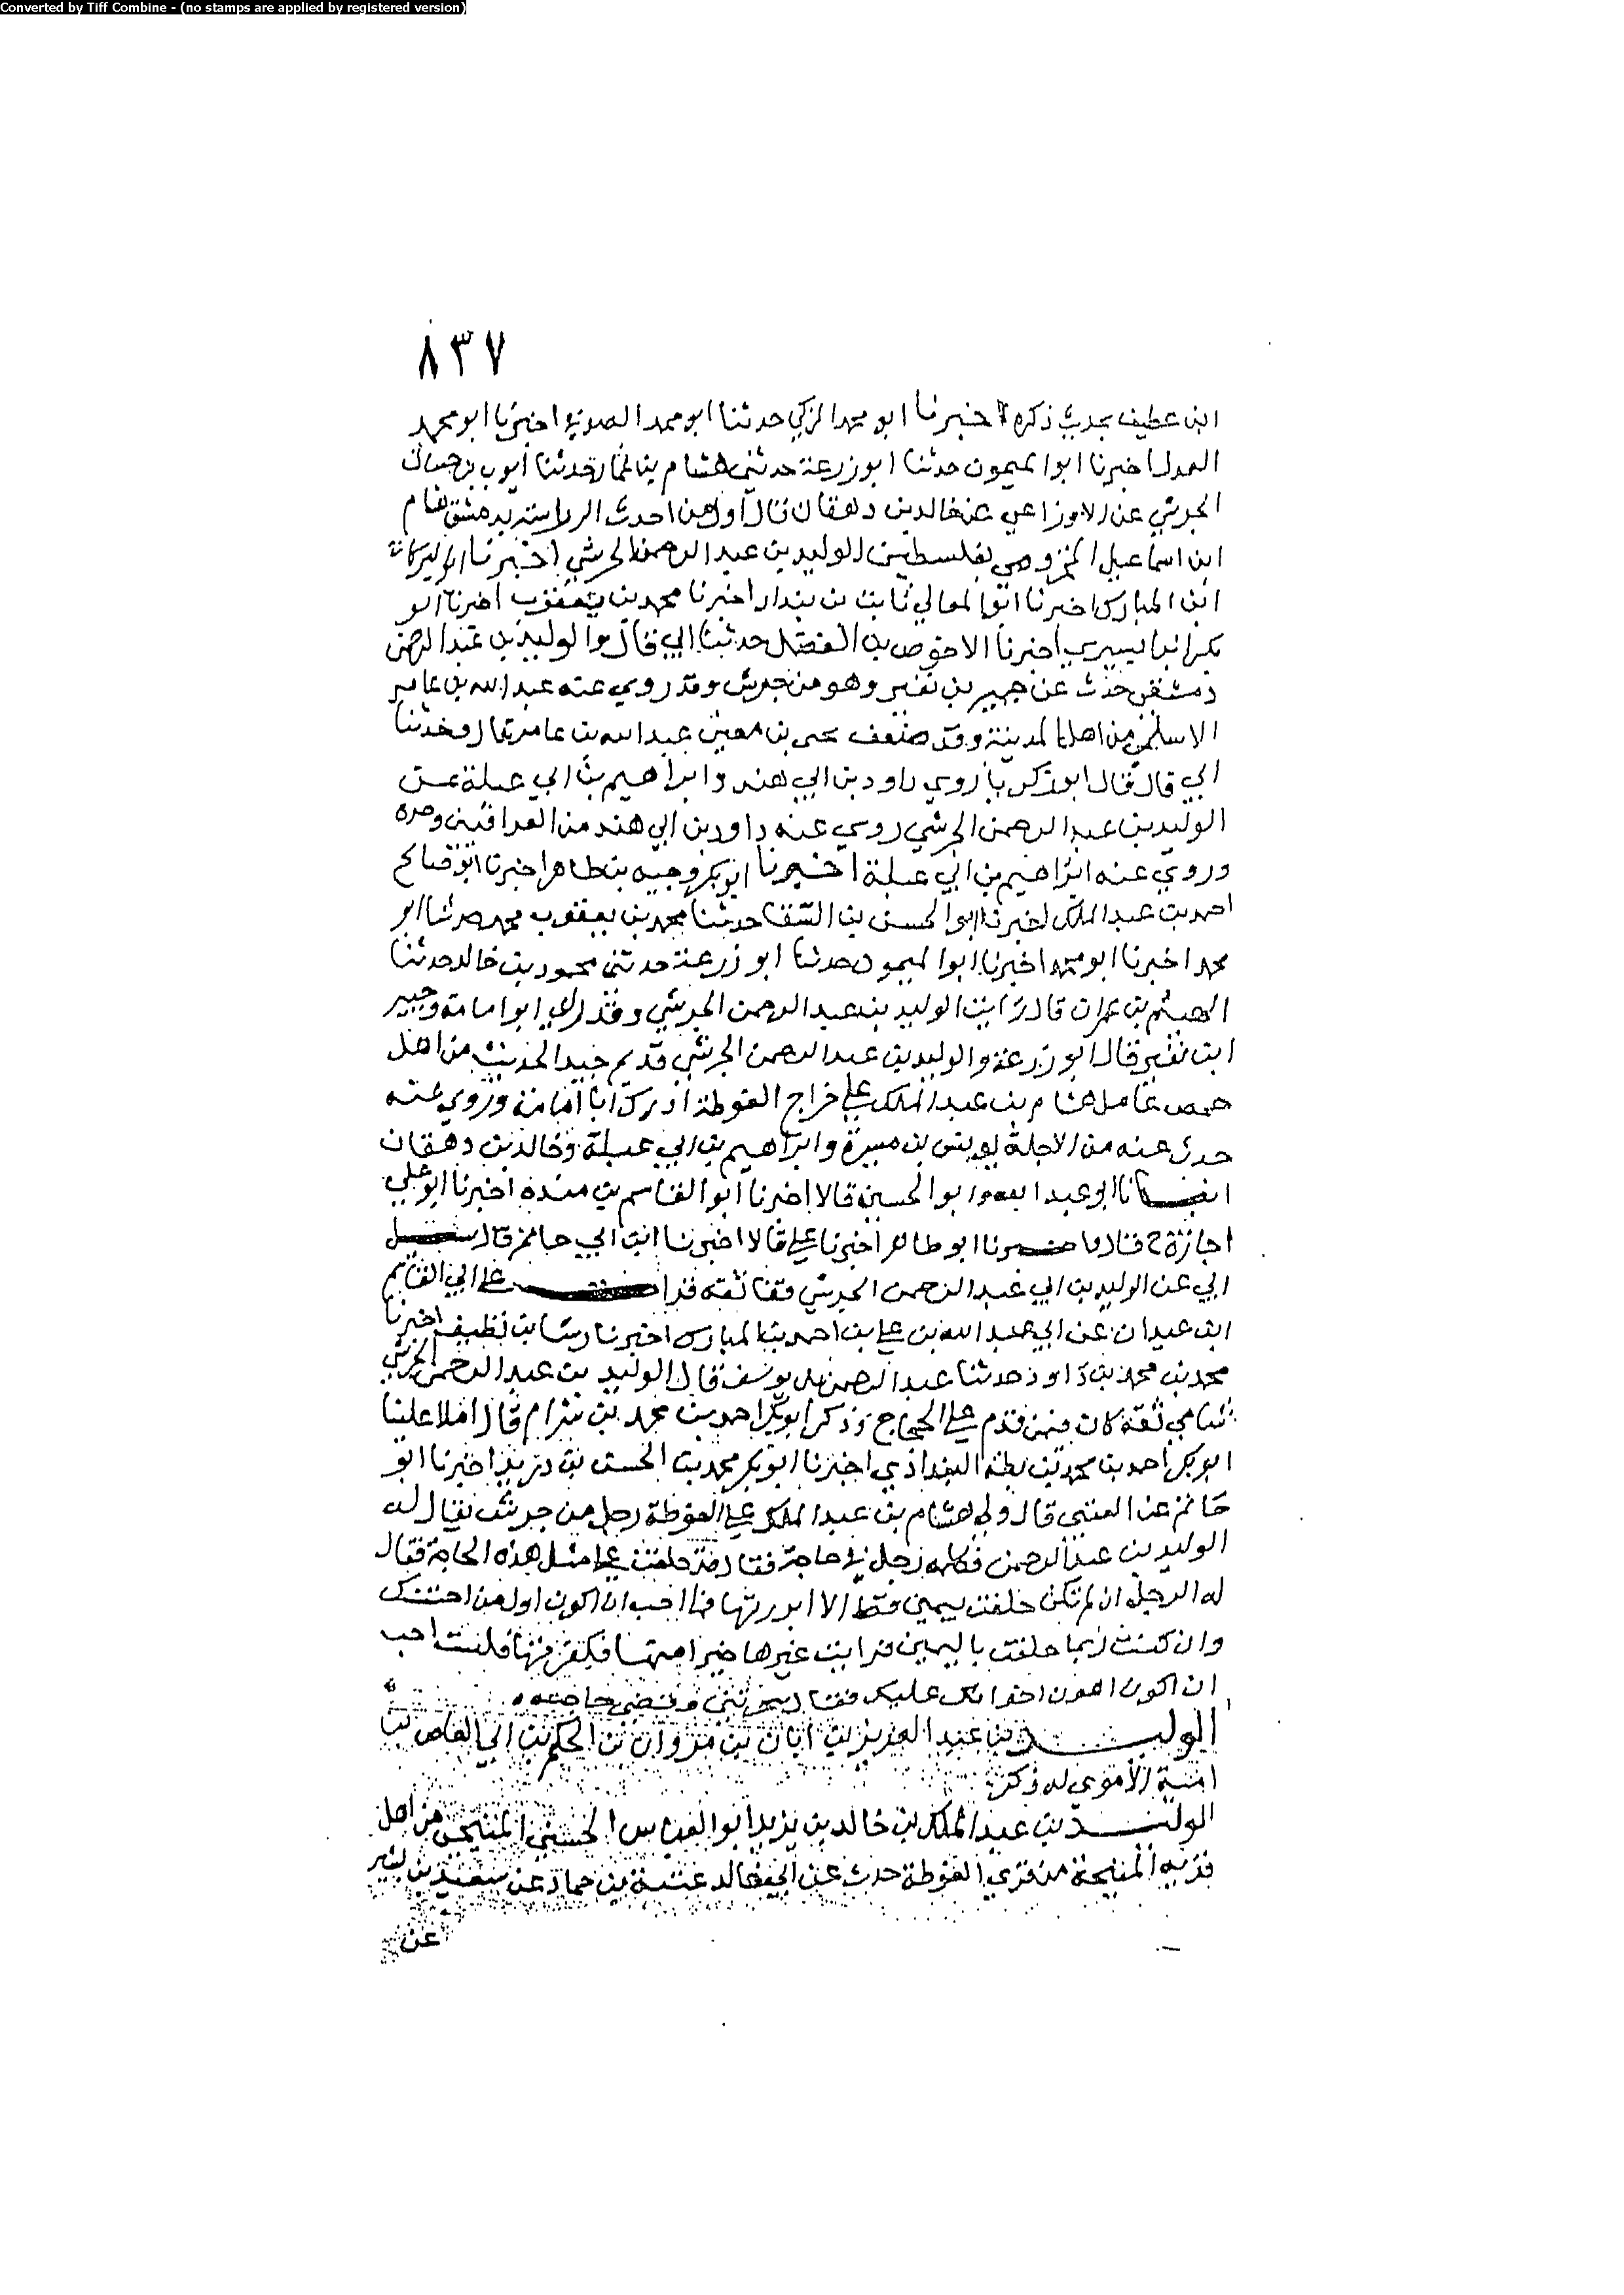 Converted by Tiff Combine - (no stamps are applied by registered version)
٨٣٧
ابن عطيف بحديث ذكره اخبرنا ابو محمد المزكي حدثنا ابو محمد الصوفي اخبرنا ابو محمد
العدل اخبرنا ابوا لميمون حدثنا ابو زرعة حدثني هشام بن عمار حدثنا ايوب بن حسان
الجرشي عن الاوزاعي عن خالد بن دهقان قال اول من احدث الدراسة بدمشق هشام
ابن اسماعيل المخزومي بفلسطين الوليد بن عبد الرحمن الجرشي اخبرنا ابو البركات
ابن المبارك اخبرنا ابو المعالي ثابت بن بندار اخبرنا محمد بن يعقوب اخبرنا ابو
بكر البابسيري اخبرنا الاحوص بن الفضل حدثنا ابي قال والوليد بن عبد الرحمن
دمشقي حدث عن جبير بن نفير وهو من جرش وقد روي عنه عبد الله بن عامر
الاسلمي من اهل المدينة وقد ضعف يحيى بن معين عبد الله بن عامر قال وحدثنا
ابي قال قال ابو زكريا روي داود بن ابي هند وابراهيم بن ابي عبلة عن
الوليد بن عبد الرحمن الجرشي روي عنه داود بن ابي هند من العراقيين وحده
وروي عنه ابراهيم بن ابي عبلة اخبرنا ابو بكر وجيه بن طاهر اخبرنا ابو صالح
احمد بن عبد الملك اخبرنا ابو الحسن بن السقا حدثنا محمد بن يعقوب حدثنا ابو
محمد اخبرنا ابو محمد اخبرنا ابوا لميمون حدثنا ابو زرعة حدثني محمود بن خالد حدثنا
الهيثم بن عمران قال رايت الوليد بن عبد الرحمن الجرشي وقد راي ابوا مامة وجبير
ابن نفير قال ابو زرعة والوليد بن عبد الرحمن الجرشي قديم جيد الحديث من اهل
حمص عامل هشام بن عبد الملك علي خراج الغوطة ادرك ابا امامة وروي عنه
حدث عنه من الاجلة يونس بن ميسرة وابراهيم بن ابي عبلة وخالد بن دهقان
انبانا ابو عبد الله وابو الحسين قالا اخبرنا ابو القاسم بن منده اخبرنا ابو علي
اجازة ح قال وا ابو طاهر اخبرنا علي قالا اخبرنا ابن ابي حاتم قال سئل
ابي عن الوليد بن ابي عبد الرحمن الجرشي فقال ثقة قرا علي ابي القاسم
ابن عبدان عن ابي عبد الله بن علي بن احمد بن المبارك اخبرنا رشا بن نظيف اخبرنا
محمد بن محمد بن داود حدثنا عبد الرحمن بن يوسف قال الوليد بن عبد الرحمن الجرشي
شامي ثقة كان فيمن قدم علي الحجاج وذكر ابو بكر احمد بن محمد بن شرام قال املا علينا
ابو بكر احمد بن محمد بن بطه البغدادي اخبرنا ابو بكر محمد بن الحسن بن دريد اخبرنا ابو
حاتم عن العتبي قال ولي هشام بن عبد الملك علي الغوطة رجل من جرش يقال له
الوليد بن عبد الرحمن فكلمه رجل في حاجة فقال قد حلفت علي مثل هذه الحاجة فقال
له الرجل ان لم تكن حلفت بيمين قط الا ابررتها فما احب ان اكون اول من احنثك
وان كنت ربما حلفت باليمين فرايت غيرها خيرا منها فكفر فلست احب
ان اكون اهون اخوانك عليك فقال سحرتني وقضي حاجته
الوليد بن عبد العزيز بن ابان بن مروان بن الحكم بن ابي العاص بن
امية الاموي له ذكر
الوليد بن عبد الملك بن خالد بن يزيد ابو العباس الخشني المنيحي من اهل
قرية المنيحة من قري الغوطة حدث عن ابي خالد عتبة بن حماد عن سعيد بن بشير
عن